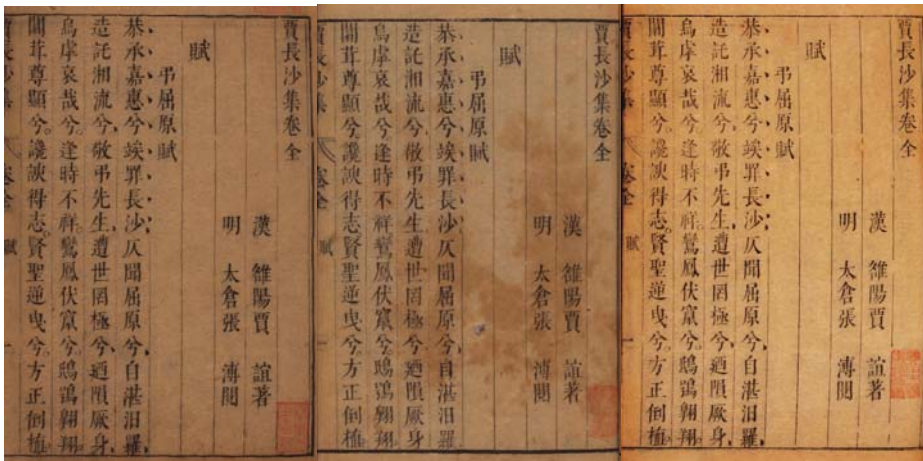 賈長沙集卷全
漢 雒陽賈 誼著
明 太倉張 溥閱
賦
弔屈原賦
恭承嘉惠兮竢罪長沙仄聞屈原兮自湛汨羅
造託湘流兮敬弔先生遭世罔極兮迺隕厥身
烏虖哀哉兮逢時不祥鸞鳳伏竄兮鴟鴞翱翔
闒茸尊顯兮讒諛得志賢聖逆曳兮方正倒植
賈長沙集 卷全 賦 一
賈長沙集卷全
漢 雒陽賈 誼著
明 太倉張 溥閱
賦
弔屈原賦
恭承嘉惠兮竢罪長沙仄聞屈原兮自湛汨羅
造託湘流兮敬弔先生遭世罔極兮迺隕厥身
烏虖哀哉兮逢時不祥鸞鳳伏竄兮鴟鴞翱翔
闒茸尊顯兮讒諛得志賢聖逆曳兮方正倒植
賈長沙集 卷全 賦 一
賈長沙集卷全
漢 雒陽賈 誼著
明 太倉張 溥閱
賦
弔屈原賦
恭承嘉惠兮竢罪長沙仄聞屈原兮自湛汨羅
造託湘流兮敬弔先生遭世罔極兮迺隕厥身
烏虖哀哉兮逢時不祥鸞鳳伏竄兮鴟鴞翱翔
闒茸尊顯兮讒諛得志賢聖逆曳兮方正倒植
賈長沙集 卷全 賦 一